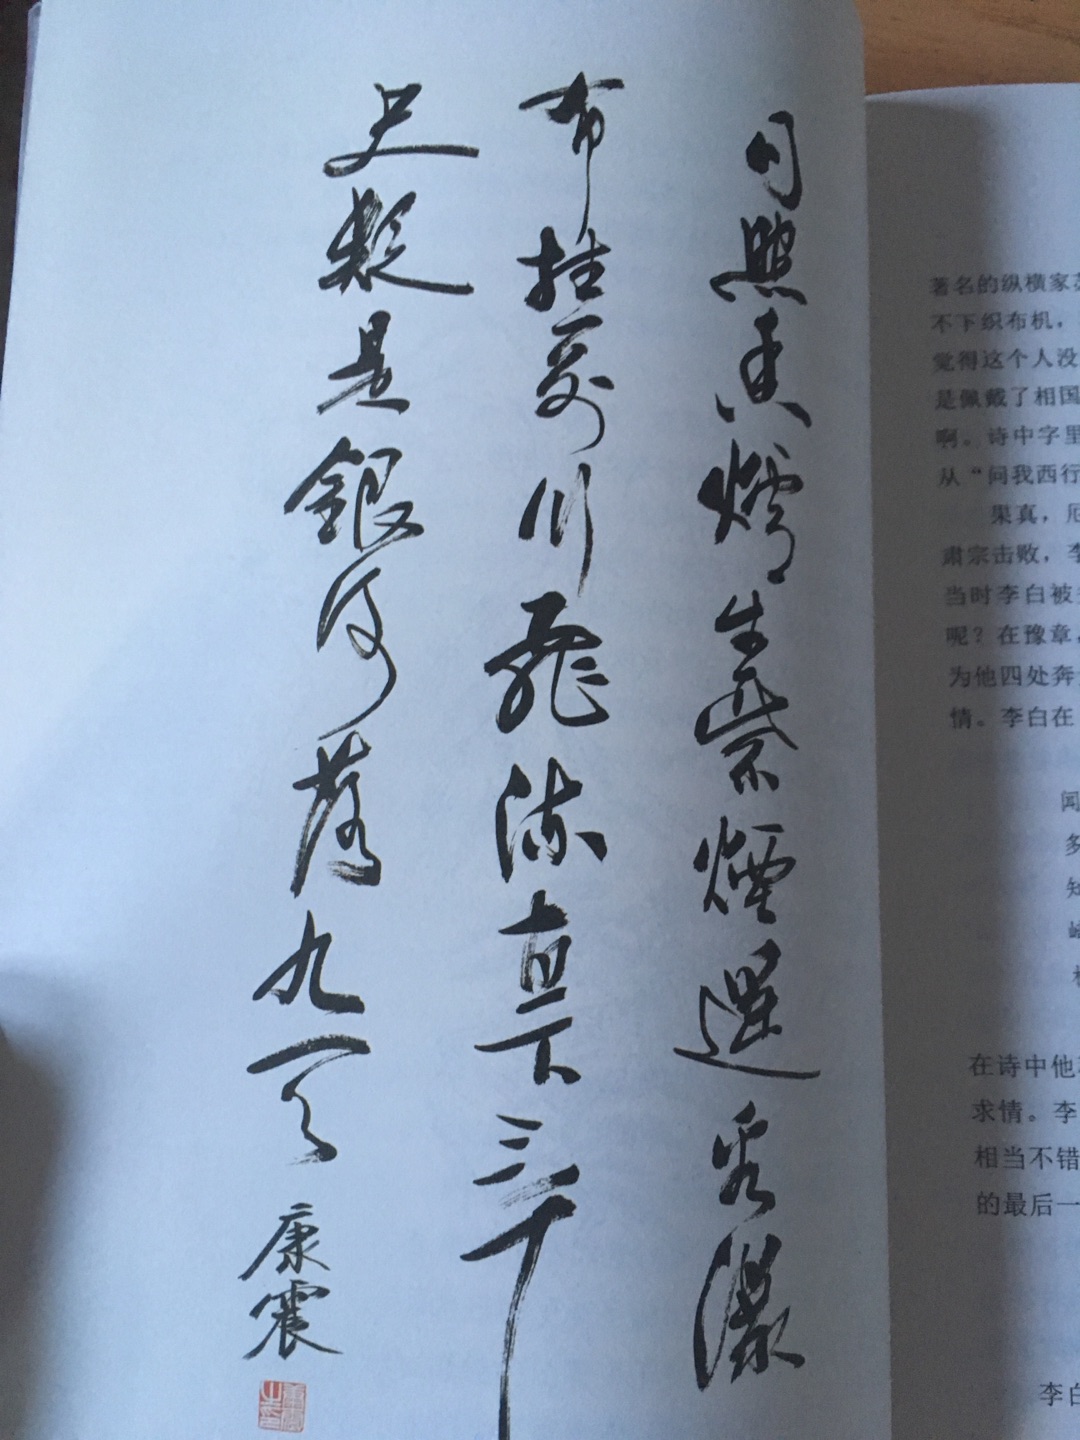 日照香爐生紫煙遥看瀑
布挂前川飛流直下三千
尺疑是銀河落九天
康震
著名的纵横家
不下织布机，
觉得这个人没
是佩戴了相国
啊。诗中字里
从“问我西行
果真，
肃宗击败，李
当时李白被
呢？在豫章，
为他四处奔
情。李白在
闻
多
在诗中他
求情。李
相当不错
的最后一
李白